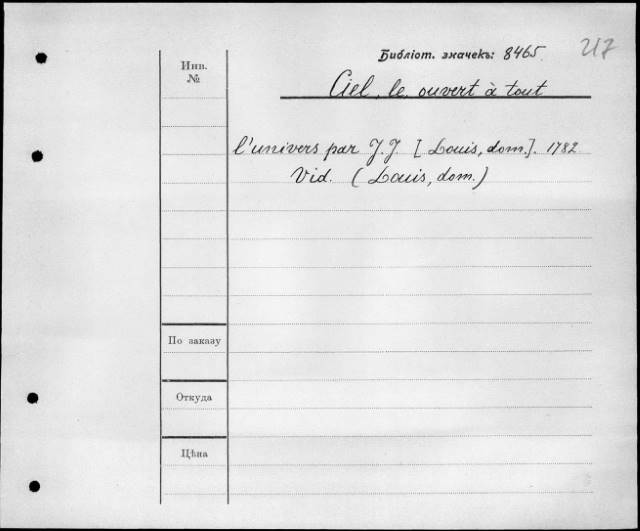 Библіот. значекъ: 8465. 217
Инв.
№
Ciel, le, ouvert à tout
l'univers par J. J. [Louis, dom.]. 1782
Vid. (Louis, dom.)
По заказу
Откуда
Цѣна